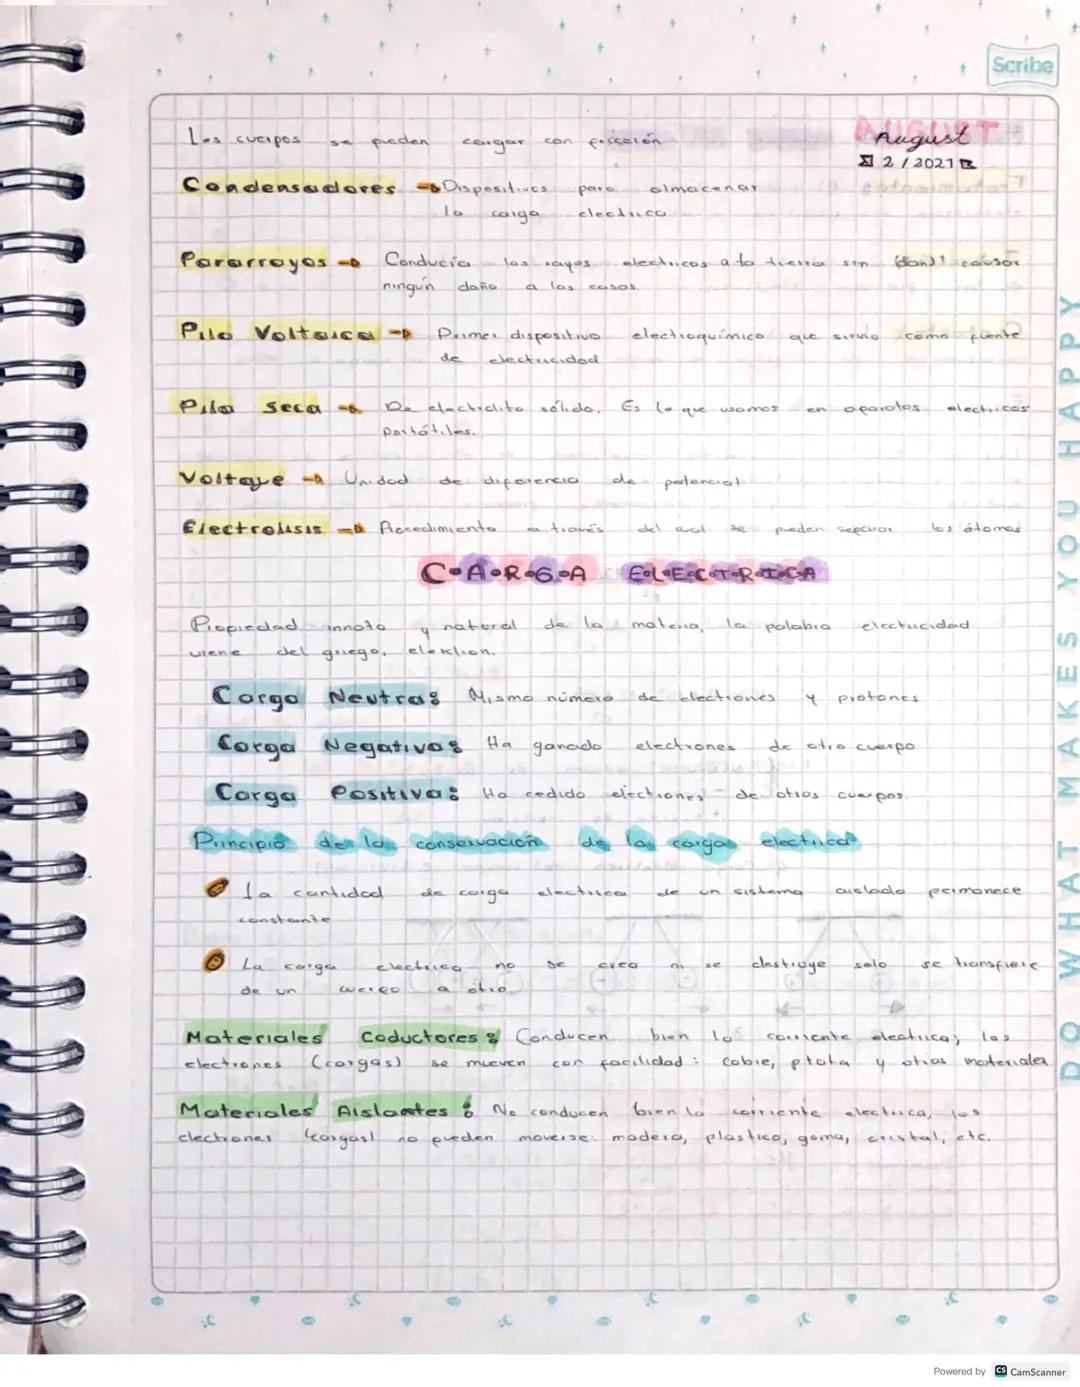 Scribe
AUGUST
August
2/2021
Los cuerpos se pueden cargar con fricción
Condensadores → Dispositivos para almacenar
la carga electrica
Pararrayos → Conducía los rayos electricos a la tierra sin causar
ningún daño a las casas
Pila Voltaica → Primer dispositivo electroquímico que sirvio como fuente
de electricidad
Pila seca → De electrolito sólido. Es lo que usamos en aparatos electricos
portátiles.
Voltaje → Unidad de diferencia de potencial
Electrolisis → Procedimiento a través del cual se pueden separar los átomos
C•A•R•G•A E•L•E•C•T•R•I•C•A
Propiedad innata y natural de la materia, la palabra electricidad
viene del griego, elektron.
Carga Neutra: Mismo número de electrones y protones
Carga Negativa: Ha ganado electrones de otro cuerpo
Carga Positiva: Ha cedido electrones de otros cuerpos.
Principio de la conservación de la carga electrica
La cantidad de carga electrica de un sistema aislado permanece
constante
La carga electrica no se crea ni se destruye solo se transfiere
de un cuerpo a otro.
Materiales Coductores: Conducen bien la corriente electrica; los
electrones (cargas) se mueven con facilidad: cobre, plata y otros materiales
Materiales Aislantes: No conducen bien la corriente electrica, los
electrones (cargas) no pueden moverse: madera, plastico, goma, cristal, etc.
DO WHAT MAKES YOU HAPPY
Powered by CS CamScanner